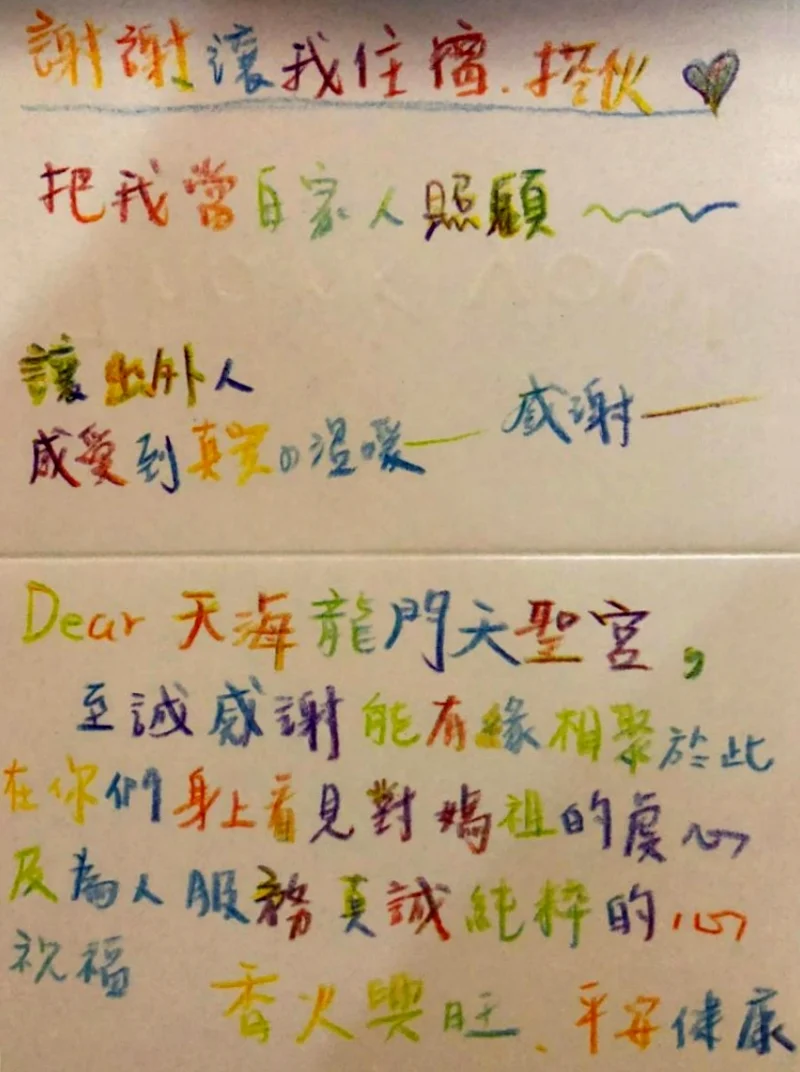 謝謝讓我住宿.搭伙
把我當自家人照顧
讓出外人
感受到真實的溫暖 感謝
Dear 天海龍門天聖宮,
至誠感謝能有緣相聚於此
在你們身上看見對媽祖的虔心
及為人服務真誠純粹的心
祝福
香火興旺、平安健康